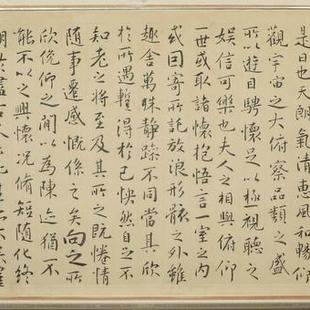 是日也天朗氣清惠風和暢仰
觀宇宙之大俯察品類之盛
所以遊目騁懷足以極視聽之
娛信可樂也夫人之相與俯仰
一世或取諸懷抱悟言一室之內
或因寄所託放浪形骸之外雖
趣舍萬殊靜躁不同當其欣
於所遇蹔得於己怏然自足不
知老之將至及其所之既惓情
隨事遷感慨係之矣向之所
欣俛仰之閒以為陳迹猶不
能不以之興懷況脩短隨化終